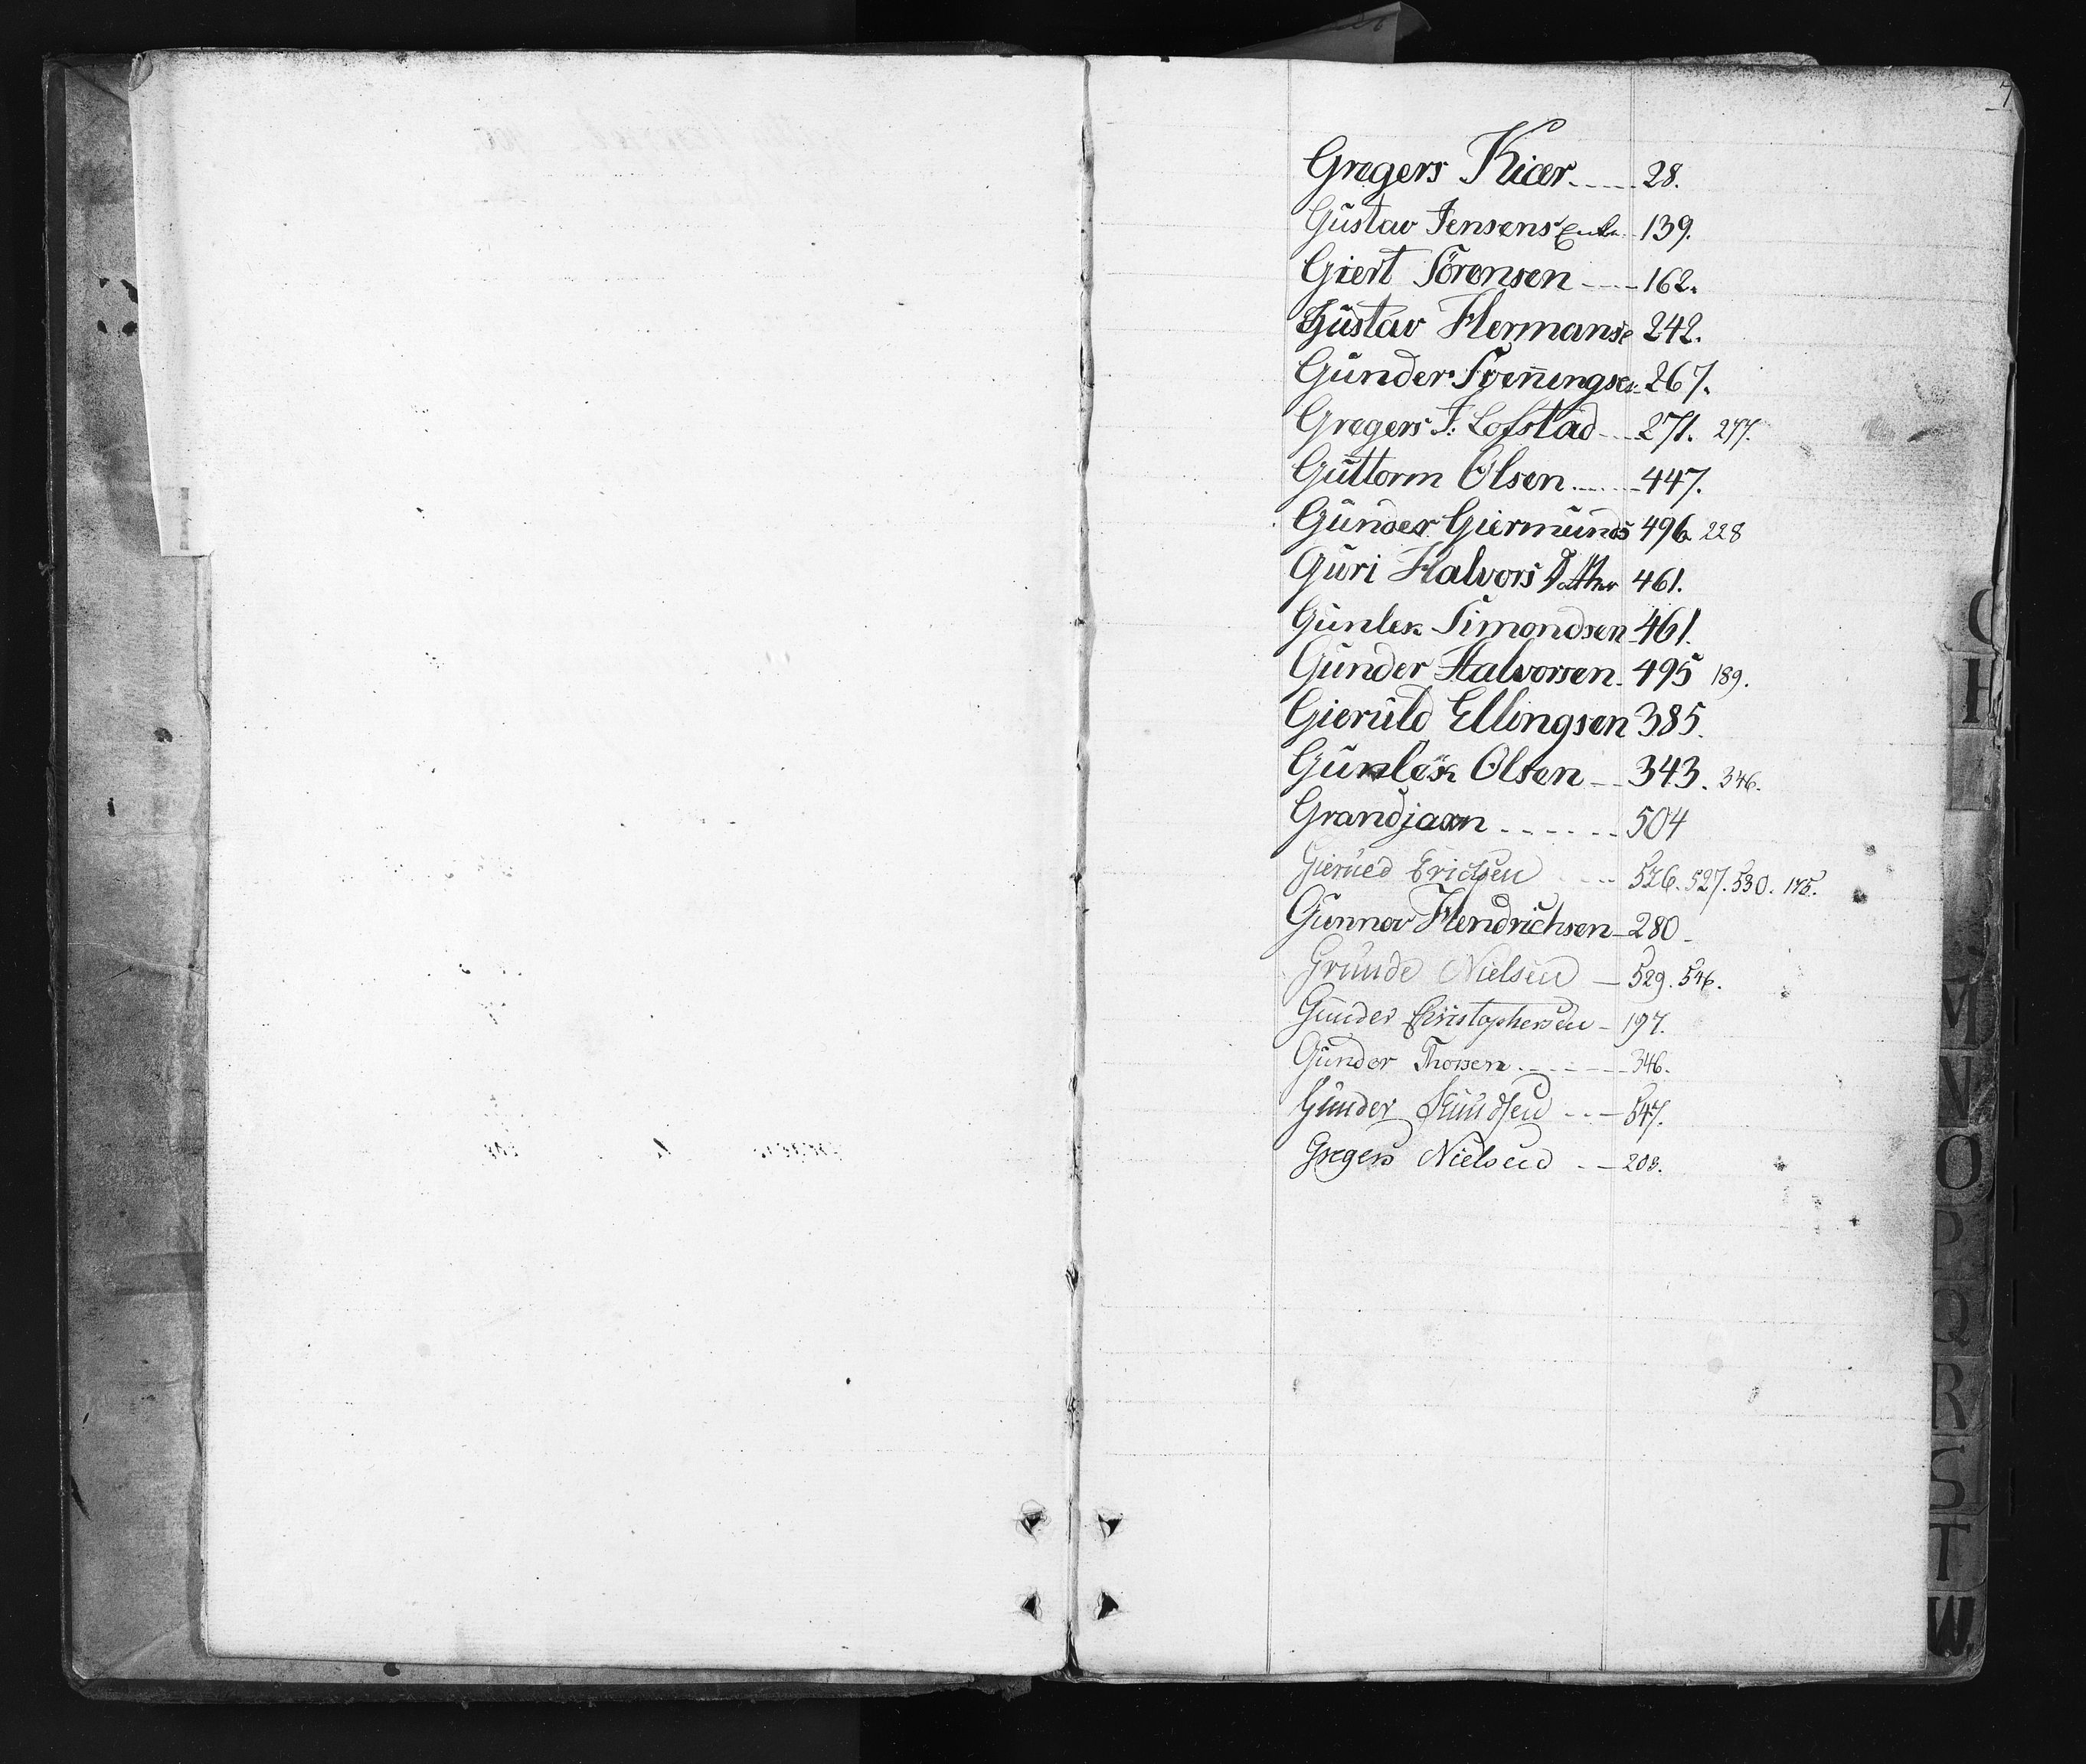 7
Gregers Kiær 28.
Gustav Jensens Enke 139.
Giert Sörensen 162.
Gustav Hermanse 242.
Gunder Svenningsen 267.
Gregers J: Lofstad 271. 277.
Guttorm Olsen 447.
Gunder Giermunds 496. 228
Guri Halvors Datter 461.
Gunlek Simondsen 461.
Gunder Halvorsen 495 189.
Gieruld Ellingsen 385.
Gunlek Olsen 343. 346.
Grandjean 504
Gierued Erichsen 526. 527. 530. 175.
Gunnov Hendrichsen 280
Grunde Nielsen 529. 546.
Gunder Christophersen 197.
Gunder Thorsen 346.
Gunder Knudsen 547.
Gregers Nielsen 203.
G
H
M
N
O
P
Q
R
S
T
W.